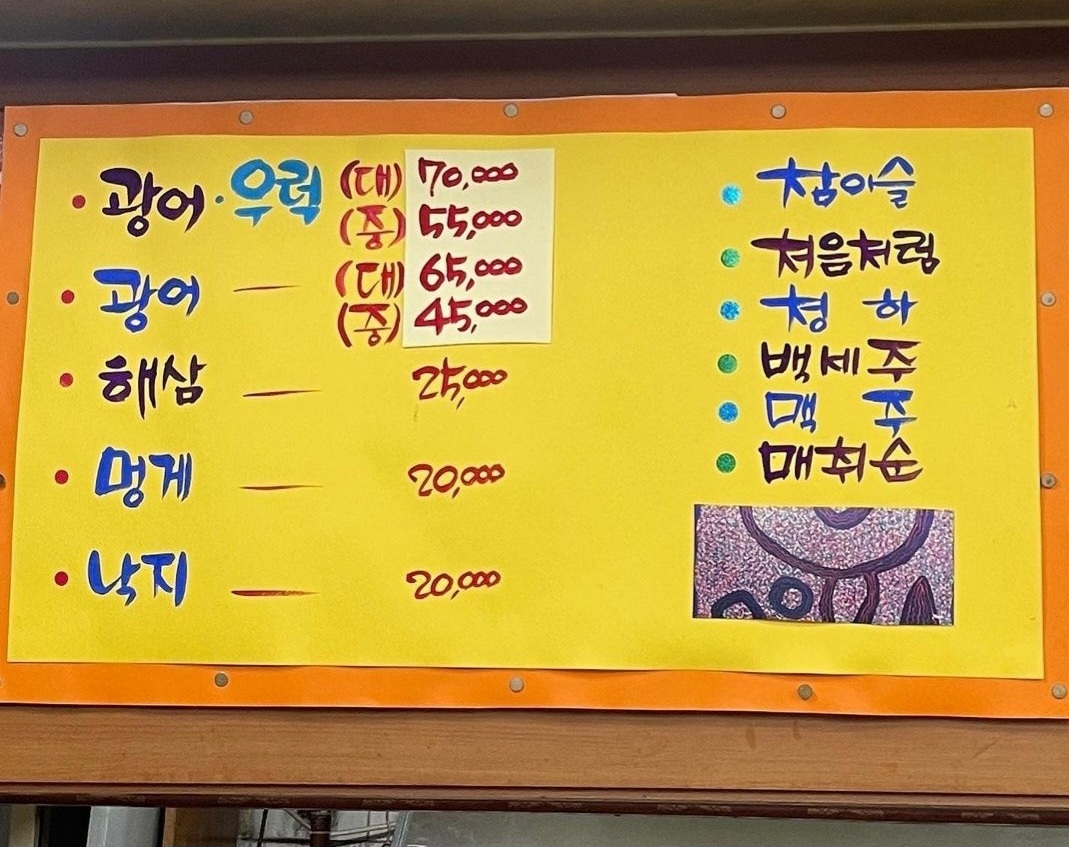 • 광어·우럭 (대) 70,000
(중) 55,000
• 광어 — (대) 65,000
(중) 45,000
• 해삼 — 25,000
• 멍게 — 20,000
• 낙지 — 20,000
• 참이슬
• 처음처럼
• 청 하
• 백세주
• 맥 주
• 매취순